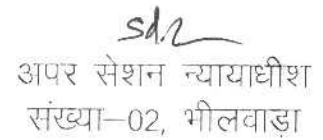 sd/
अपर सेशन न्यायाधीश
संख्या–02, भीलवाड़ा